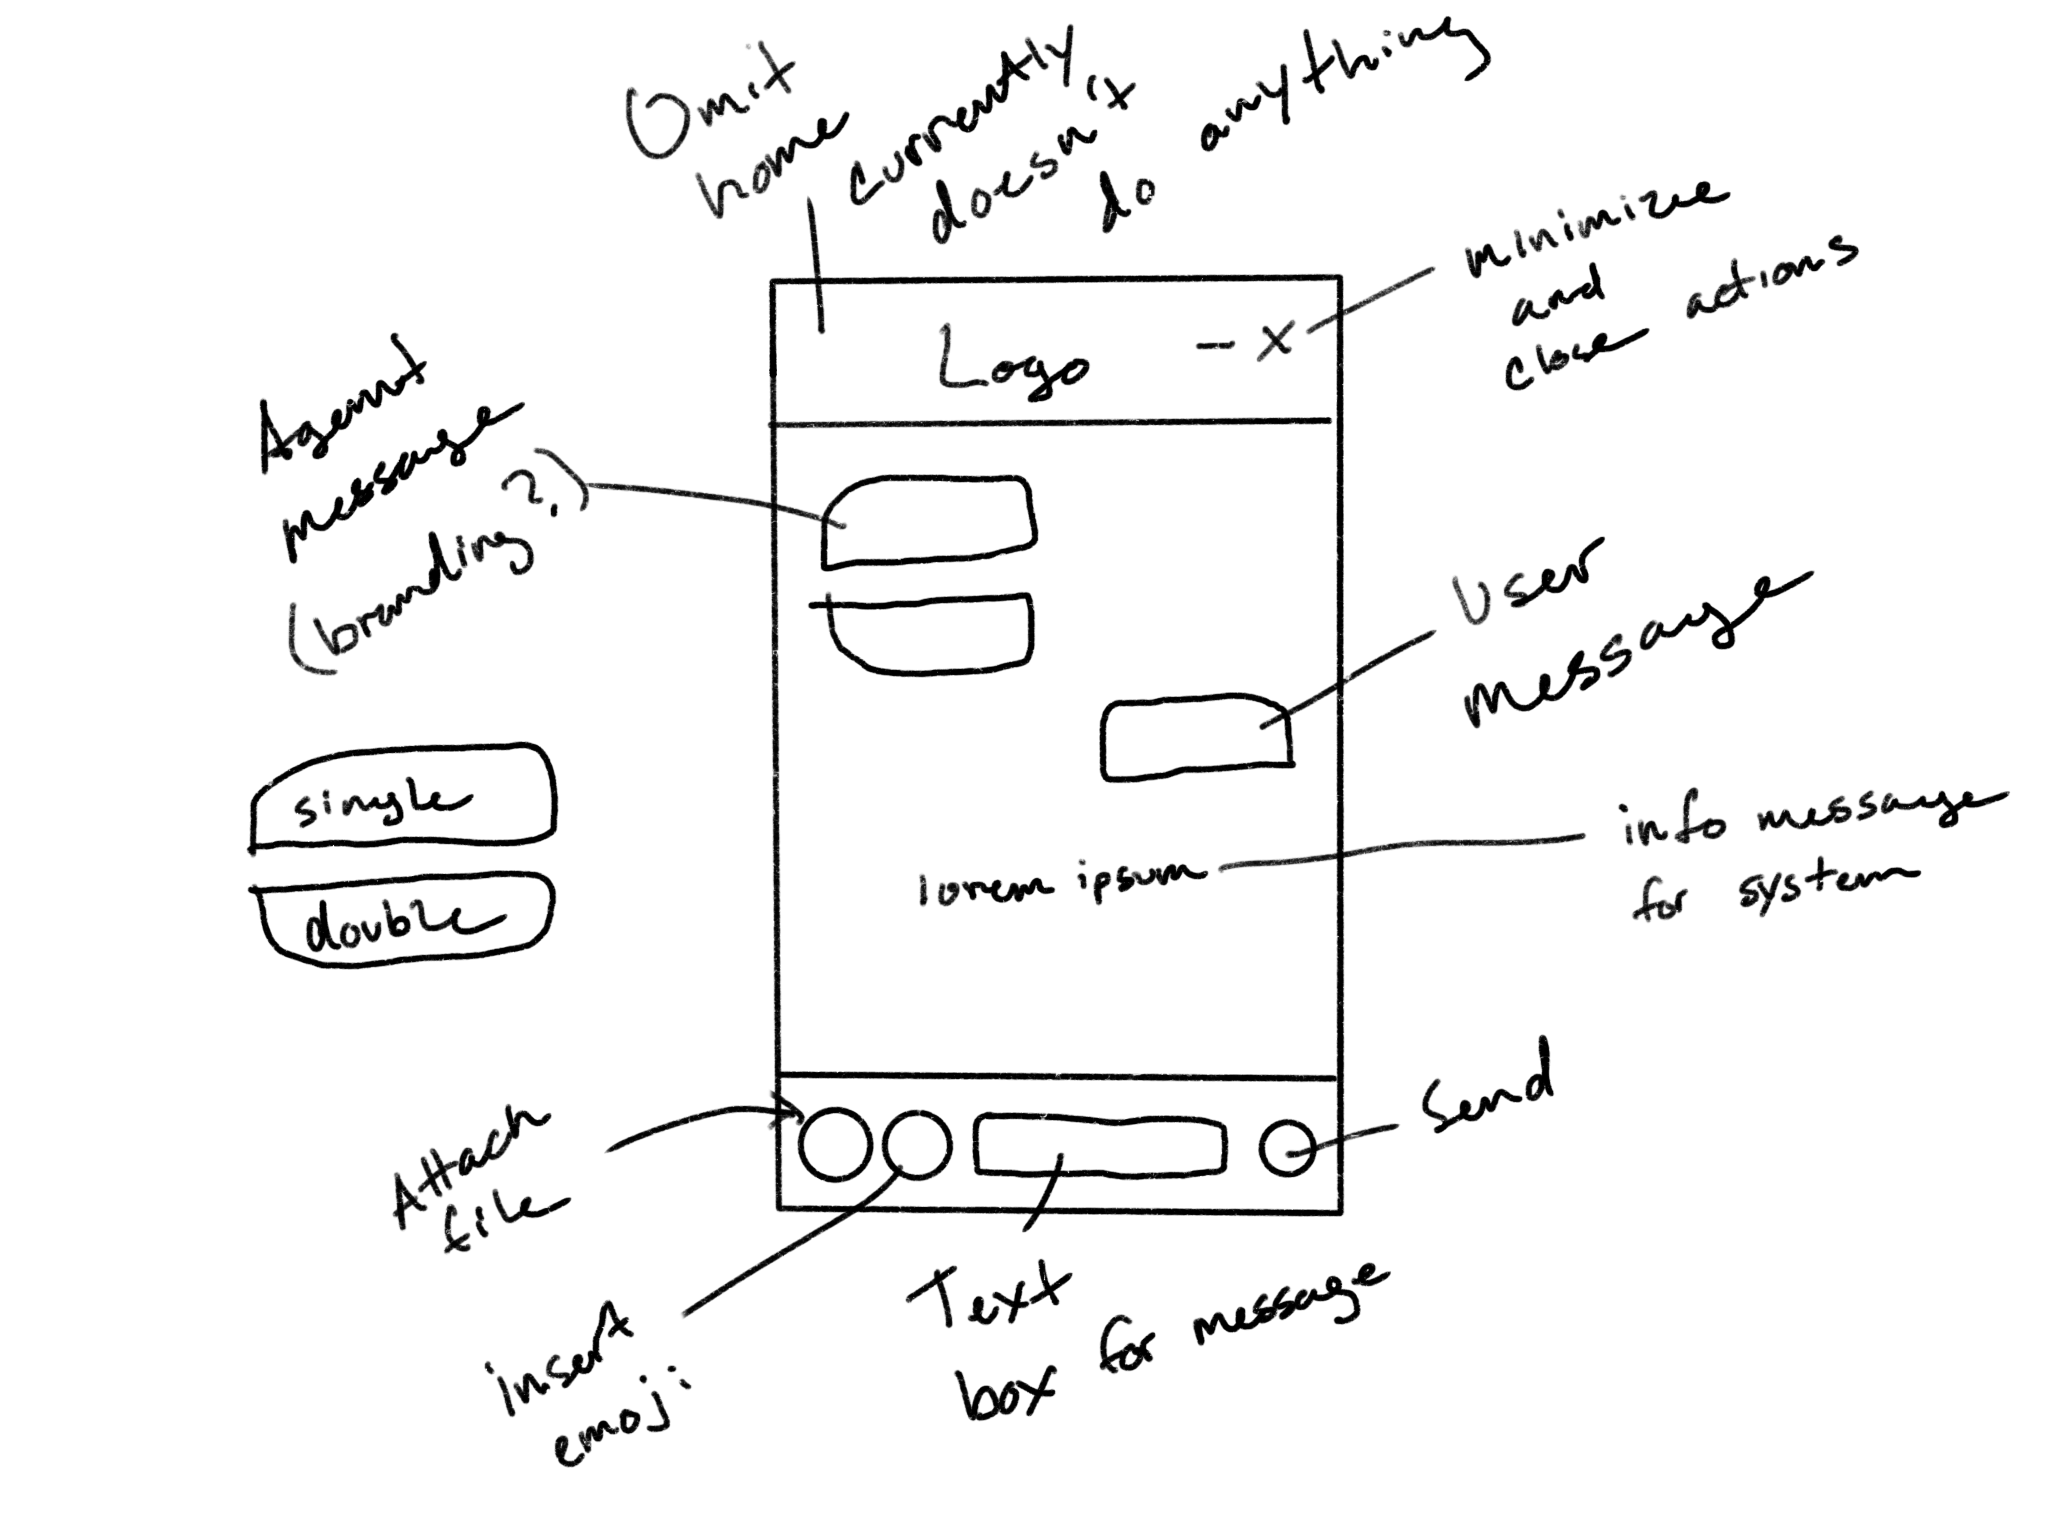 Omit
home
currently
doesn't
do anything
minimize
and
close actions
Logo - X
Agent
message
(branding?)
User
message
single
double
lorem ipsum
info message
for system
Send
Attach
file
insert
emoji
Text
box for message